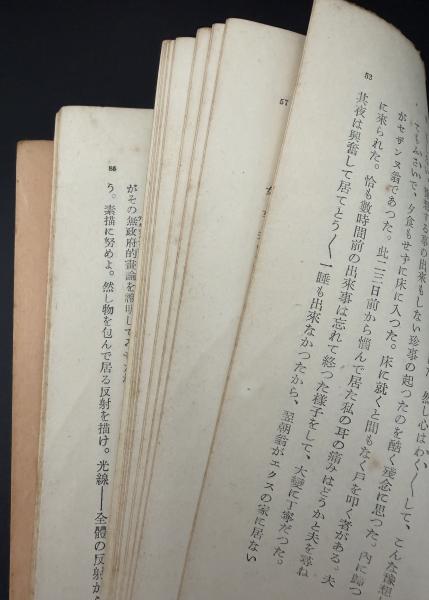 52
然し心はわく／＼して、こんな豫想
する事の出來もしない珍事の起つたのを酷く殘念に思つた。内に歸つ
てもふさいで、夕食もせずに床に入つた。床に就くと間もなく戸を叩く者がある。夫
がセザンヌ翁であつた。此二三日前から惱んで居た私の耳の痛みはどうかと夫を尋ね
に來られた。恰も數時間前の出來事は忘れて終つた樣子をして、大變に丁寧だつた。
其夜は興奮して居てとう／＼一睡も出來なかつたから、翌朝翁がエクスの家に居ない
57
86
がその無政府的畫論を
う。素描に努めよ。然し物を包んで居る反射を描け。光線——全體の反射から